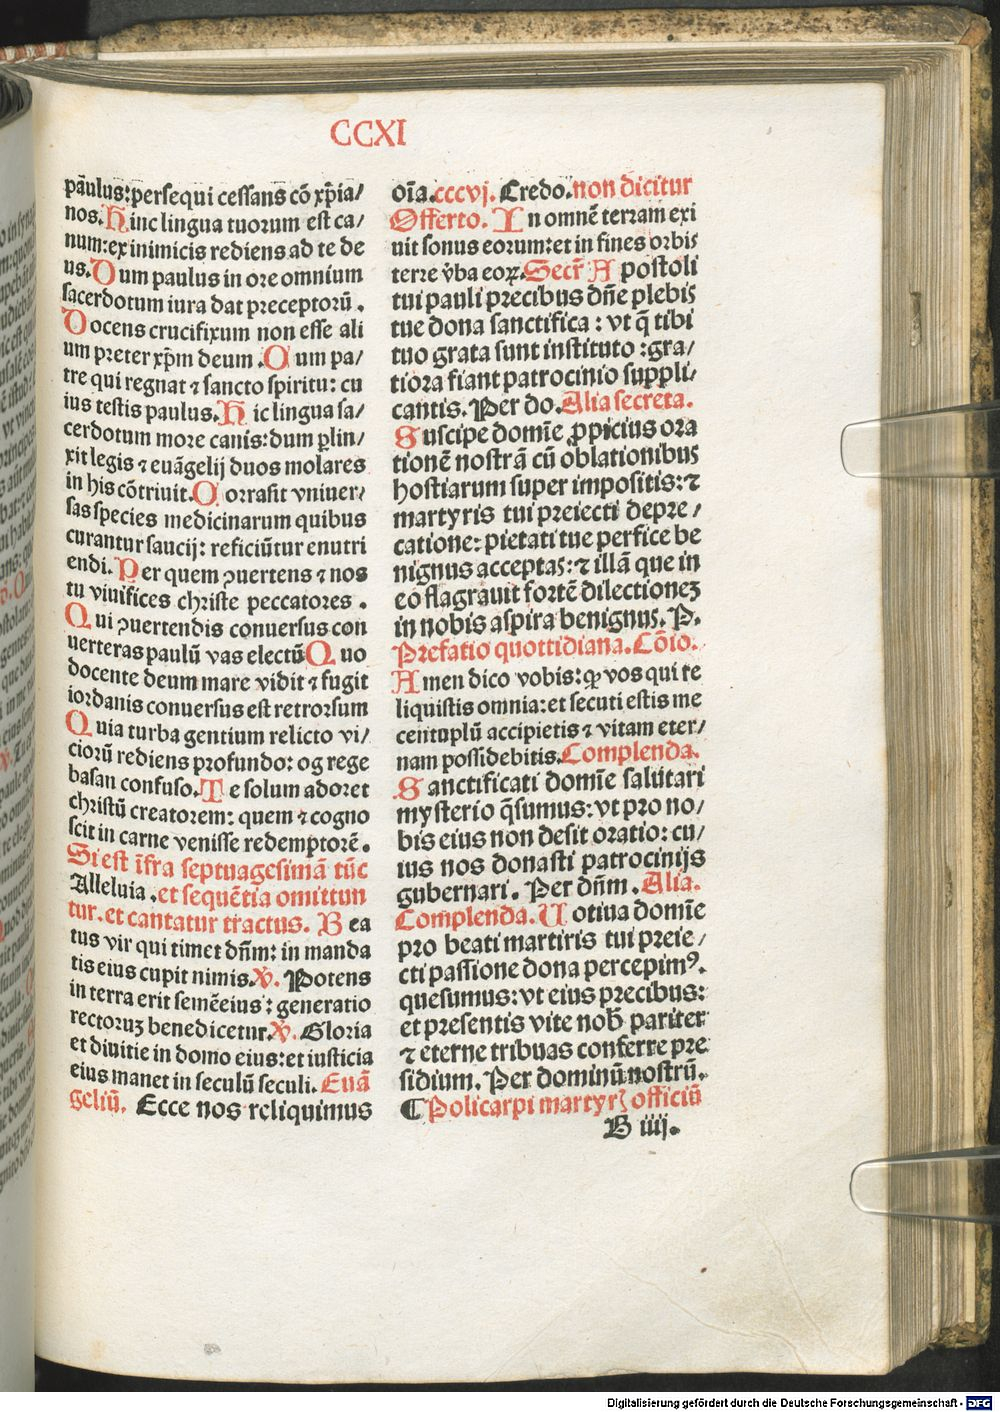 CCXI
paulus:persequi cessans cō xp̄ia/
nos. Hinc lingua tuorum est ca/
num:ex inimicis rediens ad te de
us. Dum paulus in ore omnium
sacerdotum iura dat preceptorū.
Docens crucifixum non esse ali
um preter xp̄m deum. Cum pa/
tre qui regnat ⁊ sancto spiritu: cu
ius testis paulus. Hic lingua sa/
cerdotum more canis: dum p̱lin/
xit legis ⁊ euāgelij duos molares
in his cōtriuit. Corrasit vniuer/
sas species medicinarum quibus
curantur saucij: reficiūtur enutri
endi. Per quem ↄuertens ⁊ nos
tu viuifices christe peccatores.
Qui ↄuertendis conuersus con
uerteras paulū vas electū Quo
docente deum mare vidit ⁊ fugit
iordanis conuersus est retrorsum
Quia turba gentium relicto vi/
ciorū rediens profundo: og rege
basan confuso. Te solum adoret
christū creatorem: quem ⁊ cogno
scit in carne venisse redemptorē.
Si est īfra septuagesimā tūc
Alleluia. et sequētia omittun
tur. et cantatur tractus. Bea
tus vir qui timet dn̄m: in manda
tis eius cupit nimis. ℣. Potens
in terra erit semē eius: generatio
rectoruꝫ benedicetur. ℣. Gloria
et diuitie in domo eius: et iusticia
eius manet in seculū seculi. Euā
geliū. Ecce nos reliquimus
oīa. cccvj. Credo. non dicitur
Offerto. In omnē terram exi
uit sonus eorum: et in fines orbis
terre v̄ba eoꝝ. Secr̄ Apostoli
tui pauli precibus dn̄e plebis
tue dona sanctifica: vt q̄ tibi
tuo grata sunt instituto: gra/
tiora fiant patrocinio suppli/
cantis. Per do. Alia secreta.
Suscipe domīe ꝓpicius ora
tionē nostrā cū oblationibus
hostiarum super impositis: ⁊
martyris tui preiecti depre/
catione: pietati tue perfice be
nignus acceptas: ⁊ illā que in
eo flagrauit fortē dilectioneꝫ
in nobis aspira benignus. P.
Prefatio quottidiana. Cōio.
Amen dico vobis: ꝙ vos qui re
liquistis omnia: et secuti estis me
centuplū accipietis ⁊ vitam eter/
nam possidebitis. Complenda.
Sanctificati domīe salutari
mysterio q̄sumus: vt pro no/
bis eius non desit oratio: cu/
ius nos donasti patrocinijs
gubernari. Per dn̄m. Alia.
Complenda. Uotiua domīe
pro beati martiris tui preie/
cti passione dona percepimꝰ.
quesumus: vt eius precibus:
et presentis vite nob̄ pariter
⁊ eterne tribuas conferre pre
sidium. Per dominū nostrū.
¶ Policarpi martyrꝭ officiū
B iiij.
Digitalisierung gefördert durch die Deutsche Forschungsgemeinschaft - DFG